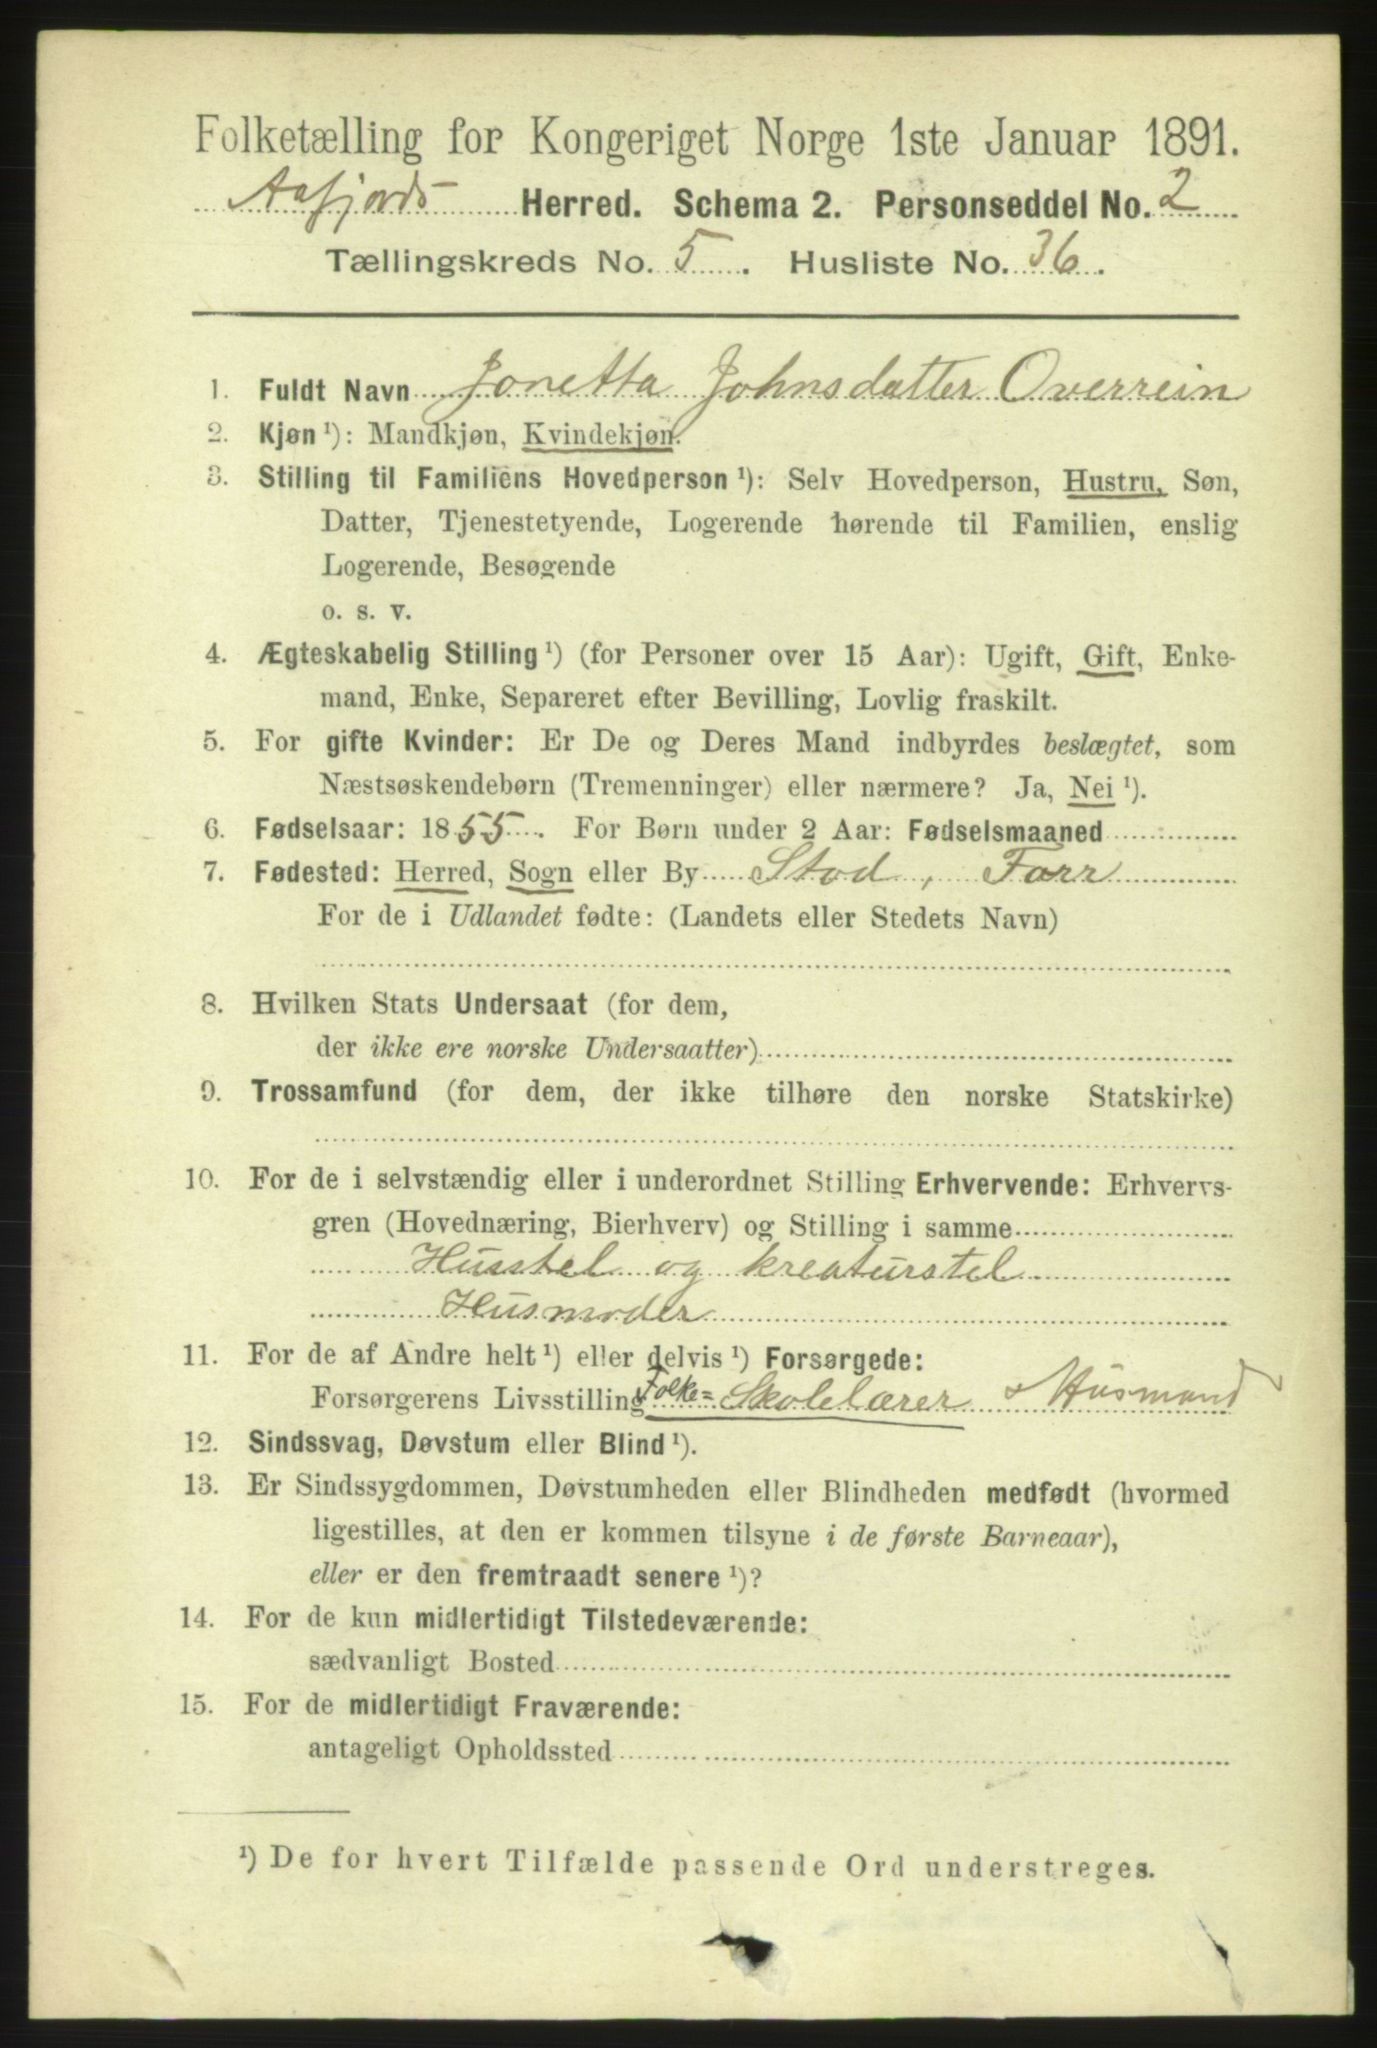 Folketælling for Kongeriget Norge 1ste Januar 1891.
Aafjords Herred. Schema 2. Personseddel No. 2
Tællingskreds No. 5. Husliste No. 36.
1. Fuldt Navn Jonetta Johnsdatter Overrein
2. Kjøn ¹): Mandkjøn, Kvindekjøn.
3. Stilling til Familiens Hovedperson ¹): Selv Hovedperson, Hustru, Søn,
Datter, Tjenestetyende, Logerende hørende til Familien, enslig
Logerende, Besøgende
o. s. v.
4. Ægteskabelig Stilling ¹) (for Personer over 15 Aar): Ugift, Gift, Enke-
mand, Enke, Separeret efter Bevilling, Lovlig fraskilt.
5. For gifte Kvinder: Er De og Deres Mand indbyrdes beslægtet, som
Næstsøskendebørn (Tremenninger) eller nærmere? Ja, Nei ¹).
6. Fødselsaar: 1855. For Børn under 2 Aar: Fødselsmaaned
7. Fødested: Herred, Sogn eller By Stod, Forr
For de i Udlandet fødte: (Landets eller Stedets Navn)
8. Hvilken Stats Undersaat (for dem,
der ikke ere norske Undersaatter)
9. Trossamfund (for dem, der ikke tilhøre den norske Statskirke)
10. For de i selvstændig eller i underordnet Stilling Erhvervende: Erhvervs-
gren (Hovednæring, Bierhverv) og Stilling i samme
Husstel og kreaturstel
Husmoder
11. For de af Andre helt ¹) eller delvis ¹) Forsørgede:
Forsørgerens Livsstilling Folke= Skolelærer & Husmand
12. Sindssvag, Døvstum eller Blind ¹).
13. Er Sindssygdommen, Døvstumheden eller Blindheden medfødt (hvormed
ligestilles, at den er kommen tilsyne i de første Barneaar),
eller er den fremtraadt senere ¹)?
14. For de kun midlertidigt Tilstedeværende:
sædvanligt Bosted
15. For de midlertidigt Fraværende:
antageligt Opholdssted
¹) De for hvert Tilfælde passende Ord understreges.